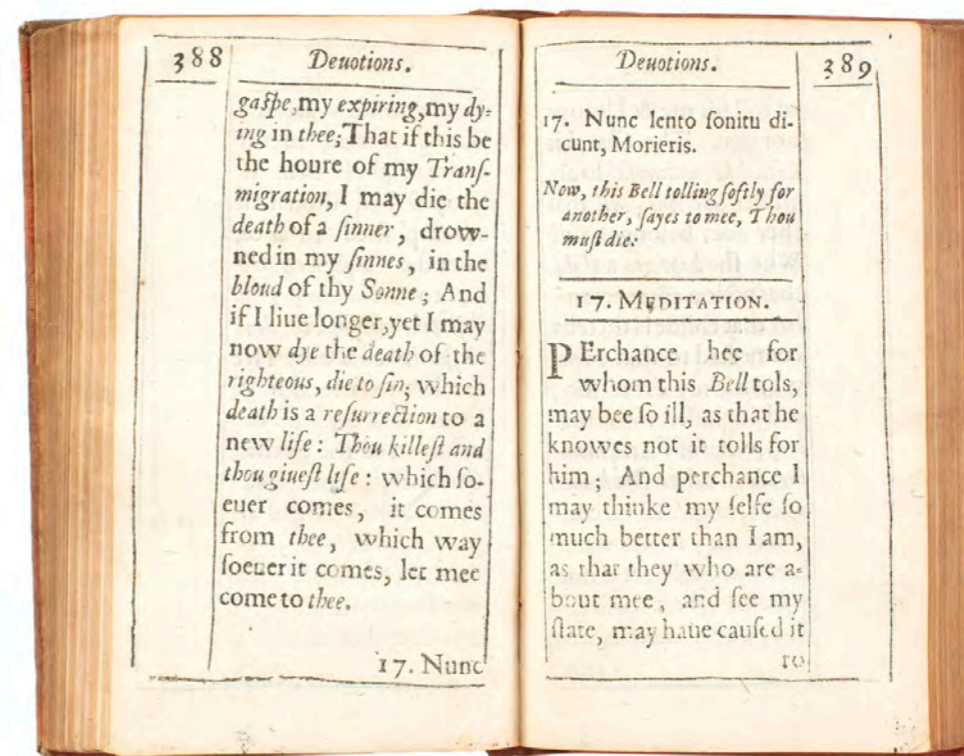 388
Deuotions.
gaſpe, my expiring, my dy-
ing in thee; That if this be
the houre of my Tranſ-
migration, I may die the
death of a ſinner, drow-
ned in my ſinnes, in the
bloud of thy Sonne; And
if I liue longer, yet I may
now dye the death of the
righteous, die to ſin; which
death is a reſurrection to a
new life: Thou killeſt and
thou giueſt life: which ſo-
euer comes, it comes
from thee, which way
ſoeuer it comes, let mee
come to thee.
17. Nunc
Deuotions.
389
17. Nunc lento ſonitu di-
cunt, Morieris.
Now, this Bell tolling ſoftly for
another, ſayes to mee, Thou
muſt die.
17. MEDITATION.
PErchance hee for
whom this Bell tols,
may bee ſo ill, as that he
knowes not it tolls for
him; And perchance I
may thinke my ſelfe ſo
much better than I am,
as that they who are a-
bout mee, and ſee my
ſtate, may haue cauſed it
to